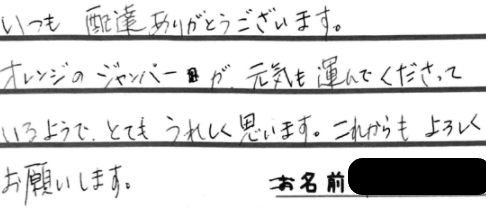 いつも 配達ありがとうございます。
オレンジの ジャンパー が、元気も 運んでくださって
いるようで、とても うれしく思います。これからも よろしく
お願いします。
お名前